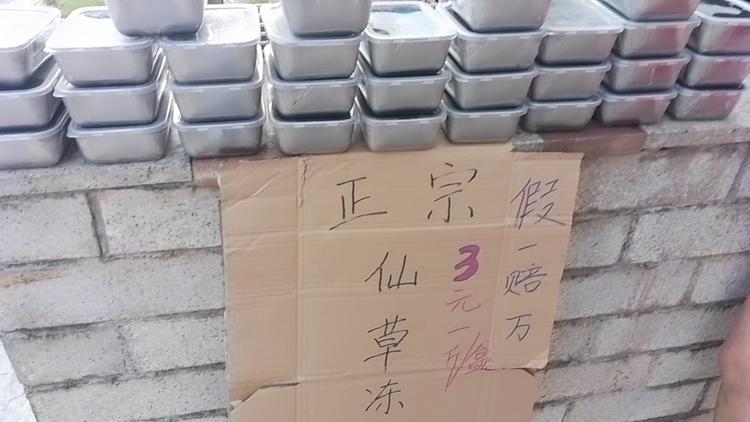 正宗
仙草冻
3元一斤/盒
假一赔万